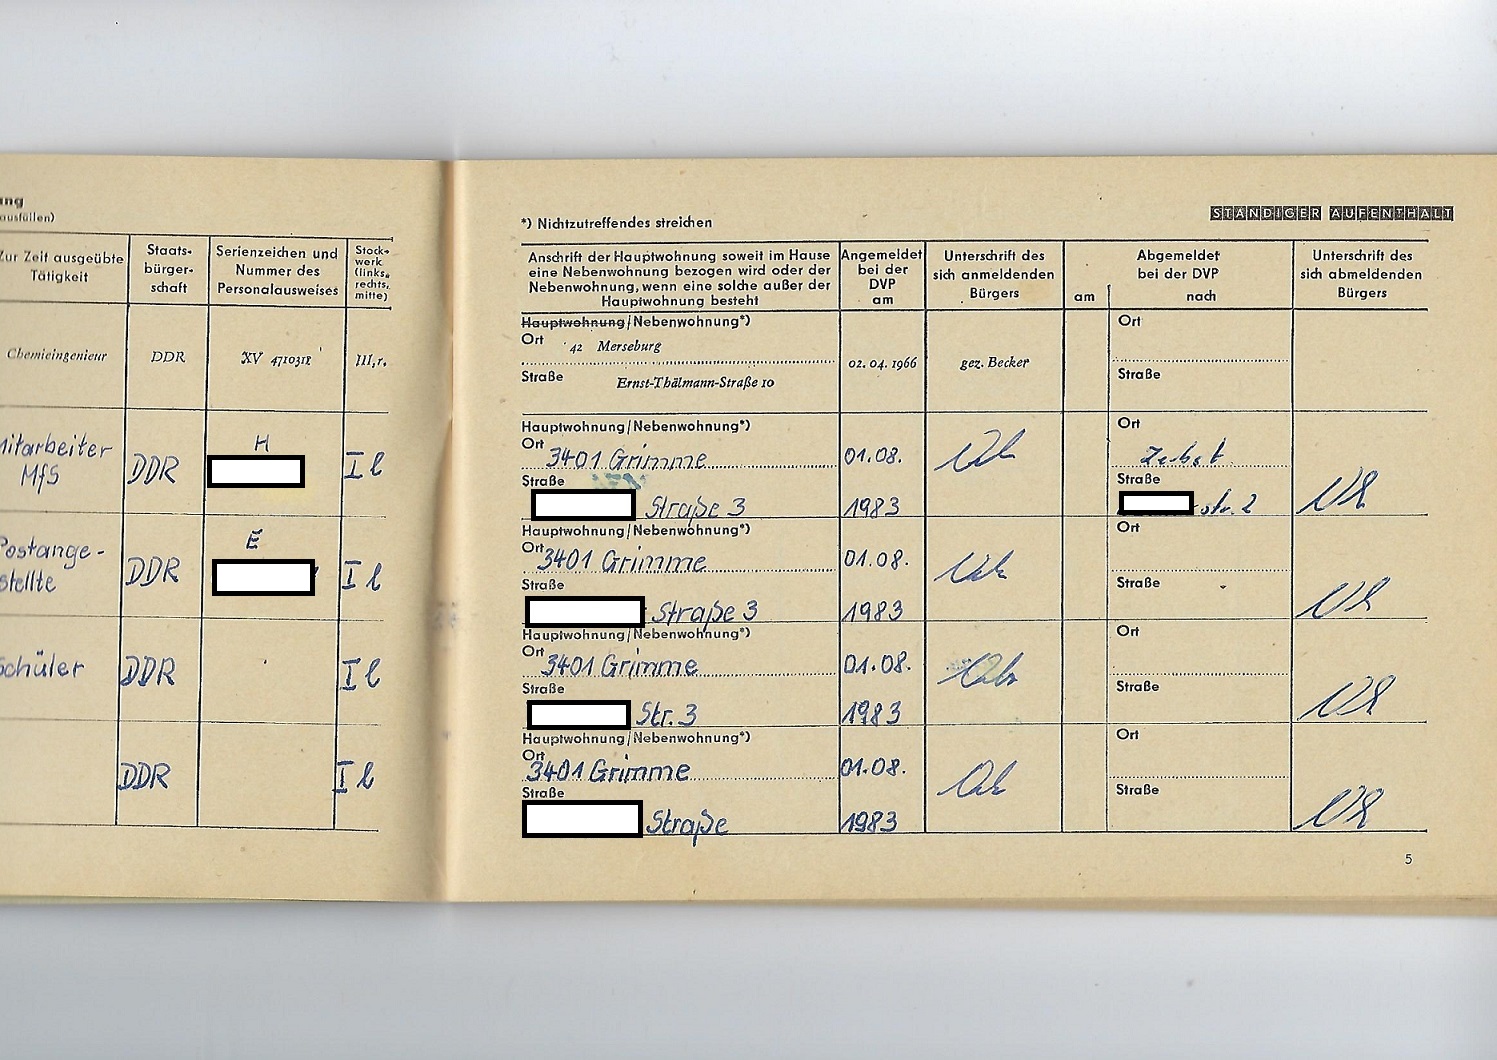 ng
ausfüllen)
*) Nichtzutreffendes streichen
STÄNDIGER AUFENTHALT
Zur Zeit ausgeübte
Tätigkeit
Staats-
bürger-
schaft
Serienzeichen und
Nummer des
Personalausweises
Stock-
werk
(links,
rechts,
mitte)
Anschrift der Hauptwohnung soweit im Hause
eine Nebenwohnung bezogen wird oder der
Nebenwohnung, wenn eine solche außer der
Hauptwohnung besteht
Angemeldet
bei der
DVP
am
Unterschrift des
sich anmeldenden
Bürgers
am
Abgemeldet
bei der DVP
nach
Unterschrift des
sich abmeldenden
Bürgers
Chemieingenieur
DDR
XV 4710318
III, r.
Hauptwohnung/Nebenwohnung*)
Ort 42 Merseburg
Straße Ernst-Thälmann-Straße 10
02. 04. 1966
gez. Becker
Ort
Straße
Mitarbeiter
MfS
DDR
H
I l
Hauptwohnung/Nebenwohnung*)
Ort 3401 Grimme
Straße
Straße 3
01.08.
1983
Ort
Zerbst
Straße
str. 2
Postange-
stellte
DDR
E
I l
Hauptwohnung/Nebenwohnung*)
Ort 3401 Grimme
Straße
Straße 3
01.08.
1983
Ort
Straße
Schüler
DDR
I l
Hauptwohnung/Nebenwohnung*)
Ort 3401 Grimme
Straße
Str. 3
01.08.
1983
Ort
Straße
DDR
I l
Hauptwohnung/Nebenwohnung*)
Ort
3401 Grimme
Straße
Straße
01.08.
1983
Ort
Straße
5